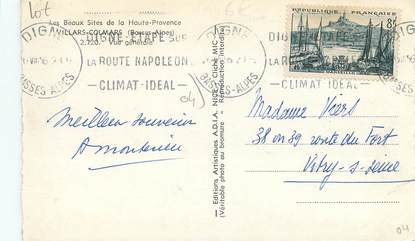 Lot
6€
Les Beaux Sites de la Haute-Provence
VILLARS-COLMARS (Basses-Alpes)
2.720. - Vue générale
DIGNE
BASSES-ALPES
DIGNE ETAPE SUR
LA ROUTE NAPOLEON
-CLIMAT IDEAL-
04
DIGNE
BASSES-ALPES
LA ROUTE
-CLIMAT IDEAL-
RÉPUBLIQUE FRANÇAISE
8F
— Editions Artistiques A.D.I.A. NICE - Cliché MIC —
(Véritable photo au bromure - Reproduction interdite)
Meilleur souvenir
Madame
rue du Fort
Vitry s/ Seine
04